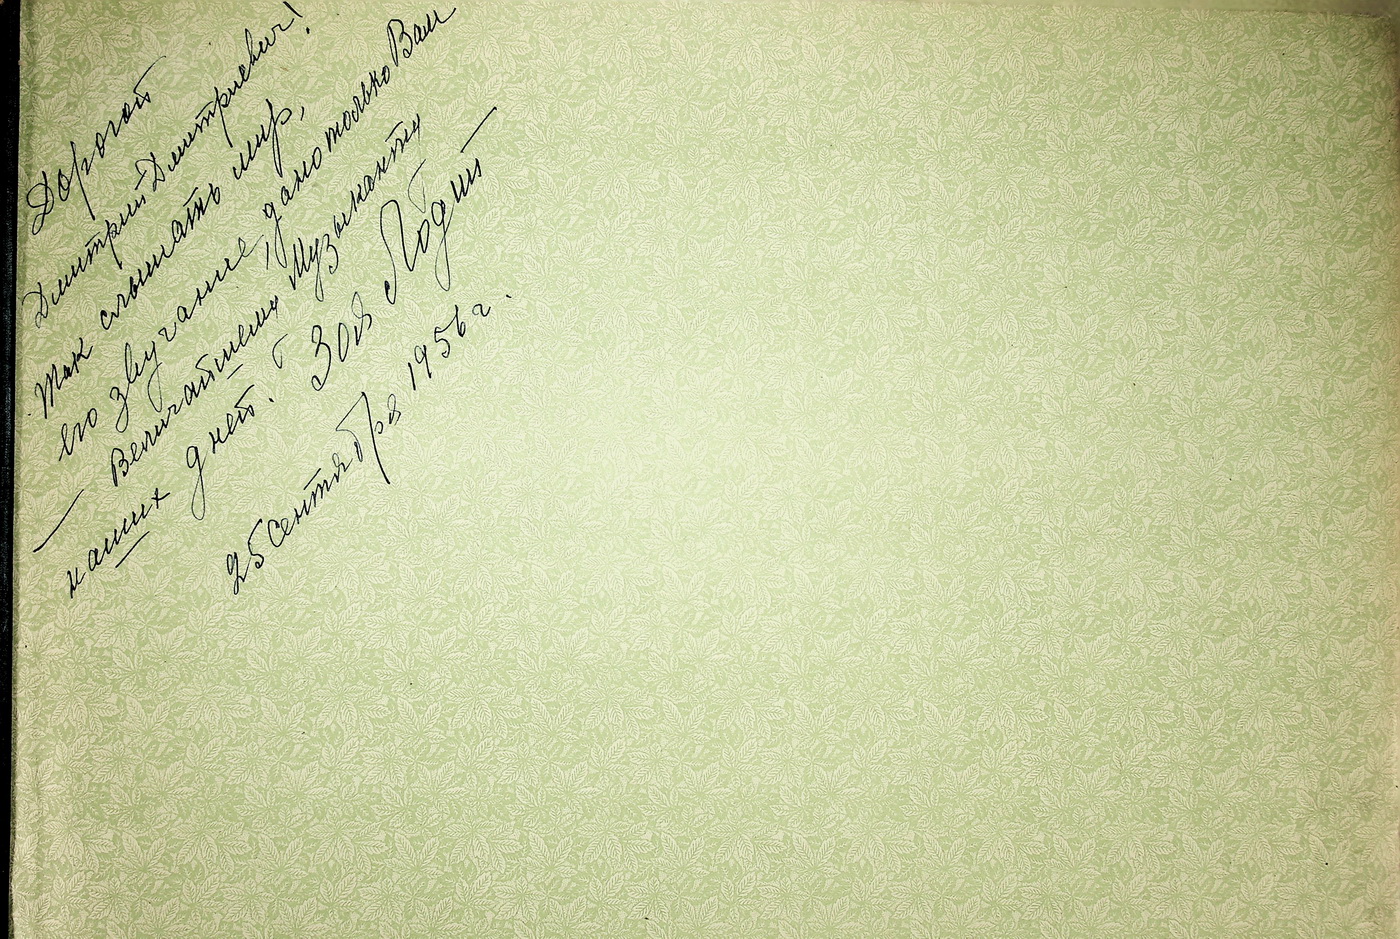 Дорогой
Дмитрий Дмитриевич!
Так слышать мир,
его звучание, дано только Вам
— Величайшему Музыканту
наших дней. Зоя Лодий
25 Сентября 1956 г.